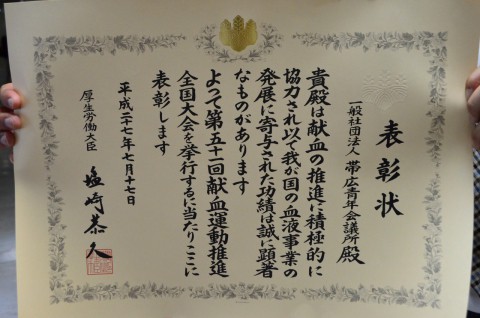 表彰状
一般社団法人 帯広青年会議所 殿
貴殿は献血の推進に積極的に
協力され以て我が国の血液事業の
発展に寄与された功績は誠に顕著
なものがあります
よって第五十一回献血運動推進
全国大会を挙行するに当たりここに
表彰します
平成二十七年七月十七日
厚生労働大臣 塩崎恭久